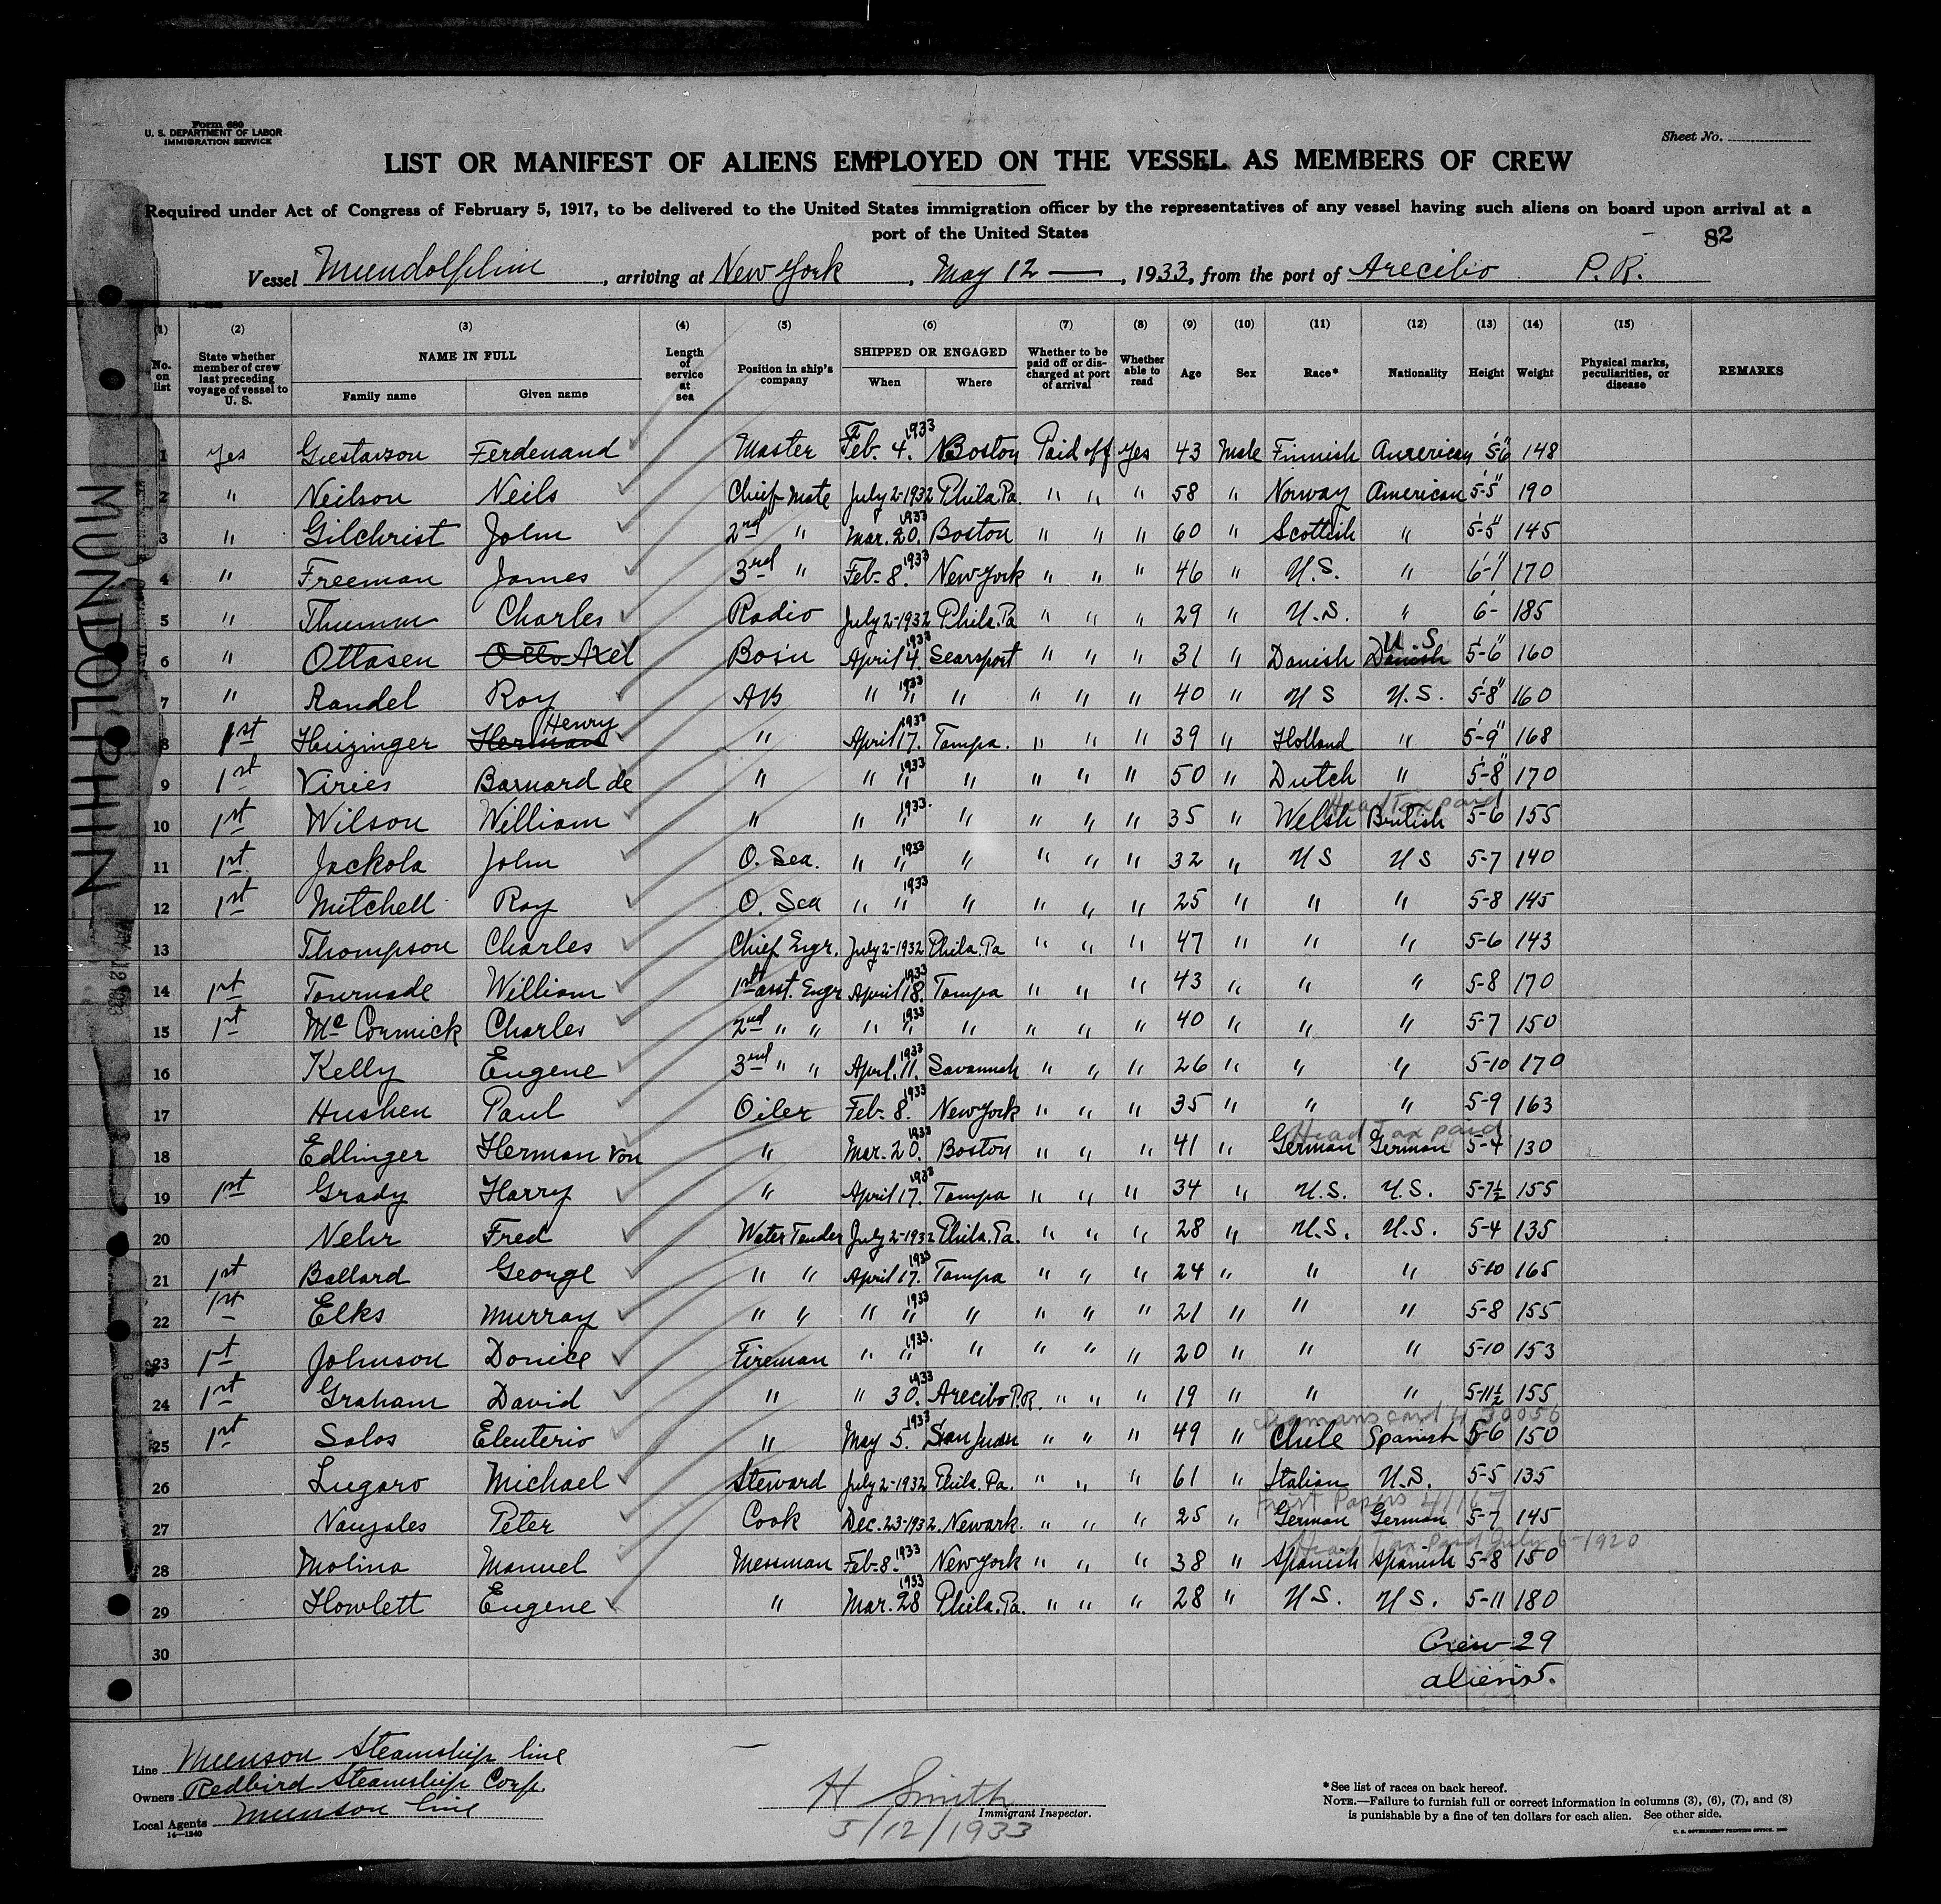 Form 680
U. S. DEPARTMENT OF LABOR
IMMIGRATION SERVICE
Sheet No.
LIST OR MANIFEST OF ALIENS EMPLOYED ON THE VESSEL AS MEMBERS OF CREW
Required under Act of Congress of February 5, 1917, to be delivered to the United States immigration officer by the representatives of any vessel having such aliens on board upon arrival at a
port of the United States
82
Vessel Mundolphin, arriving at New York, May 12 —, 1933, from the port of Arecibo P.R.
(1) (2) (3) (4) (5) (6) (7) (8) (9) (10) (11) (12) (13) (14) (15)
No. on list State whether member of crew last preceding voyage of vessel to U. S. NAME IN FULL Family name Given name Length of service at sea Position in ship's company SHIPPED OR ENGAGED When Where Whether to be paid off or discharged at port of arrival Whether able to read Age Sex Race* Nationality Height Weight Physical marks, peculiarities, or disease REMARKS
1 Yes Gustavson Ferdenand Master Feb. 4. 1933 Boston Paid off Yes 43 Male Finnish American 5'6" 148
2 " Neilson Neils Chief Mate July 2-1932 Phila. Pa. " " " 58 " Norway American 5'-5" 190
3 " Gilchrist John 2nd " Mar. 20. 1933 Boston " " " 60 " Scottish " 5'-5" 145
4 " Freeman James 3rd " Feb. 8. 1933 New York " " " 46 " U.S. " 6'-1" 170
5 " Thumm Charles Radio July 2-1932 Phila. Pa " " " 29 " U.S. " 6'- 185
6 " Ottasen Otto Axel Bos'n April 4. 1933 Searsport " " " 31 " Danish Danish U.S 5'-6" 160
7 " Randel Roy AB " " 1933 " " " " 40 " U S U.S. 5'-8" 160
8 1st Huizinger Herman Henry " April 17. 1933 Tampa. " " " 39 " Holland " 5'-9" 168
9 1st Viries Barnard de " " " 1933 " " " " 50 " Dutch " 5'-8" 170
Head Tax paid
10 1st Wilson William " " " 1933. " " " " 35 " Welsh British 5-6 155
11 1st Jackola John O. Sea. " " 1933 " " " " 32 " U S U S 5-7 140
12 1st Mitchell Roy O. Sea " " 1933 " " " " 25 " " " 5-8 145
13 Thompson Charles Chief Engr. July 2-1932 Phila. Pa " " " 47 " " " 5-6 143
14 1st Tournade William 1st asst. Engr April 18. 1933 Tampa " " " 43 " " " 5-8 170
15 1st Mc Cormick Charles 2nd " " " " 1933 " " " " 40 " " " 5-7 150
16 Kelly Eugene 3rd " " April. 11. 1933 Savannah " " " 26 " " " 5-10 170
17 Hushen Paul Oiler Feb- 8. 1933 New York " " " 35 " " " 5-9 163
Head Tax paid
18 Edlinger Herman Von " Mar. 20. 1933 Boston " " " 41 " German German 5-4 130
19 1st Grady Harry " April 17. 1933 Tampa " " " 34 " U.S. U.S. 5-7½ 155
20 Nehr Fred Water Tender July 2-1932 Phila. Pa. " " " 28 " U.S. U.S. 5-4 135
21 1st Ballard George " " April 17. 1933 Tampa " " " 24 " " " 5-10 165
22 1st Elks Murray " " " " 1933 " " " " 21 " " " 5-8 155
23 1st Johnson Donice Fireman " " 1933. " " " " 20 " " " 5-10 153
24 1st Graham David " " 30. 1933 Arecibo P.R. " " " 19 " " " 5-11½ 155
Seamans card # 30056
25 1st Salos Eleuterio " May 5. 1933 San Juan " " " 49 " Chile Spanish 5-6 150
26 Lugaro Michael Steward July 2-1932 Phila. Pa. " " " 61 " Italian U.S. 5-5 135
First Papers
27 Nangales Peter Cook Dec. 23-1932. Newark. " " " 25 " German German 5-7 145
Head Tax Paid July 6-1920
28 Molina Manuel Messman Feb-8. 1933 New York " " " 38 " Spanish Spanish 5-8 150
29 Howlett Eugene " Mar. 28 1933 Phila. Pa. " " " 28 " U.S. U.S. 5-11 180
30 Crew 29
aliens 5.
Line Munson Steamship line
Owners Redbird Steamship Corp.
Local Agents Munson line
14—1240
H Smith
Immigrant Inspector.
5/12/1933
*See list of races on back hereof.
NOTE.—Failure to furnish full or correct information in columns (3), (6), (7), and (8)
is punishable by a fine of ten dollars for each alien. See other side.
U. S. GOVERNMENT PRINTING OFFICE
MUNDOLPHIN